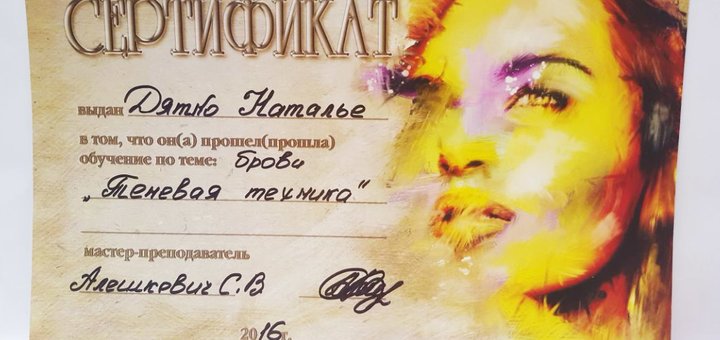 СЕРТИФИКАТ
выдан Дятко Наталье
в том, что он(а) прошел(прошла)
обучение по теме: брови
„Теневая техника"
мастер-преподаватель
Алешкевич С.В
2016г.